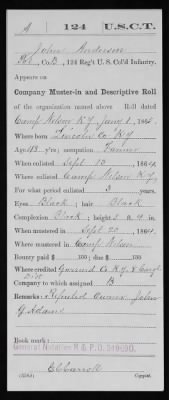 A 124 U.S.C.T.
John Anderson
Pvt., Co. B, 124 Reg't U. S. Col'd Infantry.
Appears on
Company Muster-in and Descriptive Roll
of the organization named above. Roll dated
Camp Nelson KY, Jany 1, 1865.
Where born Lincoln Co KY
Age 43 y'rs; occupation Farmer
When enlisted Sept. 10, 1864.
Where enlisted Camp Nelson KY.
For what period enlisted 3 years.
Eyes Black; hair Black
Complexion Black; height 5 ft. 4 in.
When mustered in Sept 20, 1864.
Where mustered in Camp Nelson
Bounty paid $ 100; due $ 100
Where credited Garrard Co KY, 8 Congl
Dist
Company to which assigned B
Remarks: Reputed Owner John
G Adams
Book mark:
General Notation R. & P. D. 549690.
E C Carroll
(356) Copyist.